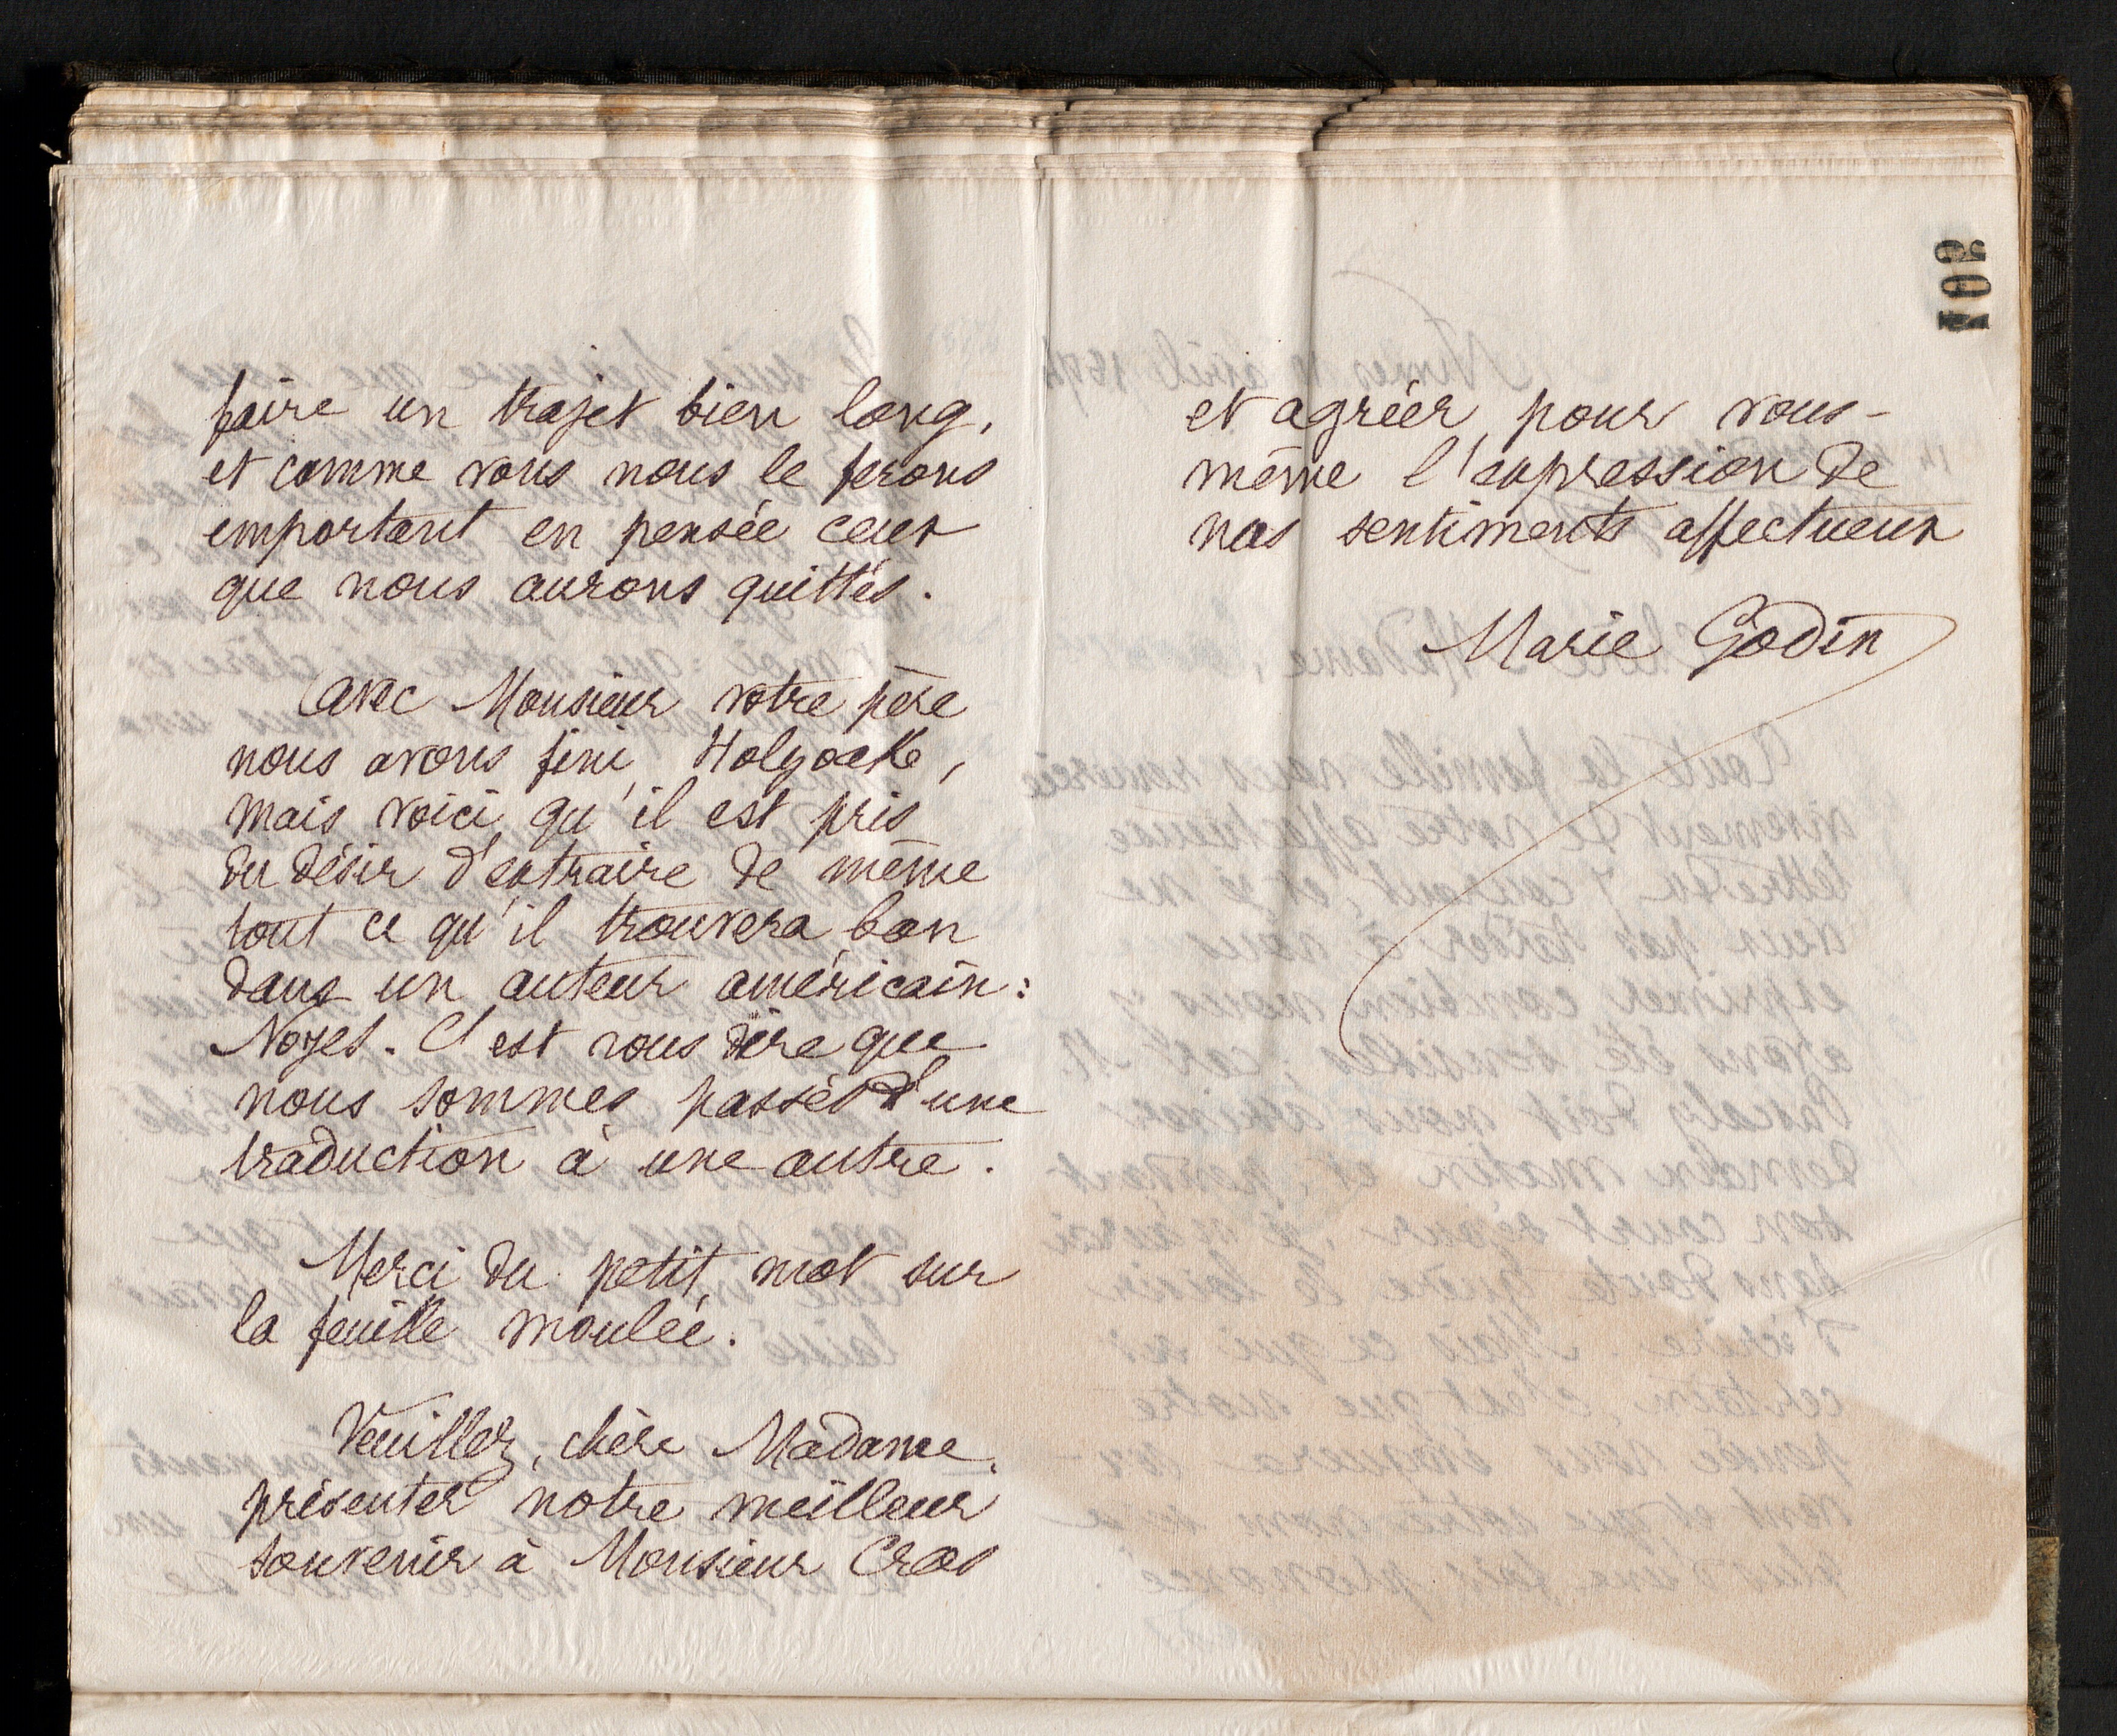 faire un trajet bien long,
et comme vous nous le ferons
emportant en pensée ceux
que nous aurons quittés.
Avec Monsieur votre père
nous avons fini Holyoake,
mais voici qu'il est pris
du désir d'extraire de même
tout ce qu'il trouvera bon
dans un auteur américain:
Noyes. C'est vous dire que
nous sommes passés d'une
traduction à une autre.
Merci du petit mot sur
la feuille moulée.
Veuillez, chère Madame,
présenter notre meilleur
souvenir à Monsieur Cros
et agréer pour vous-
même l'expression de
nos sentiments affectueux
Marie Godin